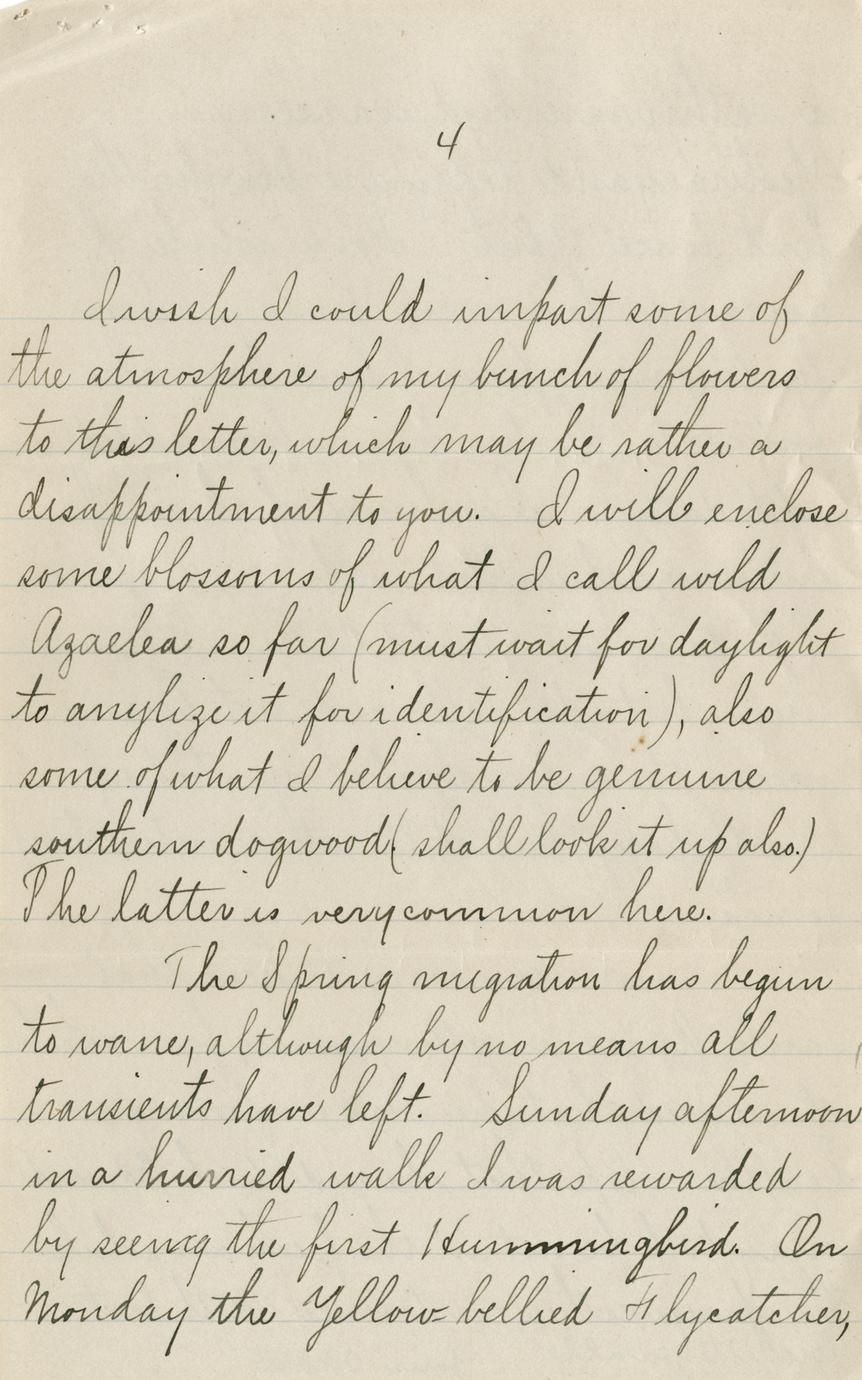 4
I wish I could impart some of
the atmosphere of my bunch of flowers
to this letter, which may be rather a
disappointment to you. I will enclose
some blossoms of what I call wild
Azaelea so far (must wait for daylight
to anylize it for identification), also
some of what I believe to be genuine
southern dogwood (shall look it up also.)
The latter is very common here.
The Spring migration has begun
to wane, although by no means all
transients have left. Sunday afternoon
in a hurried walk I was rewarded
by seeing the first Hummingbird. On
Monday the Yellow=bellied Flycatcher,